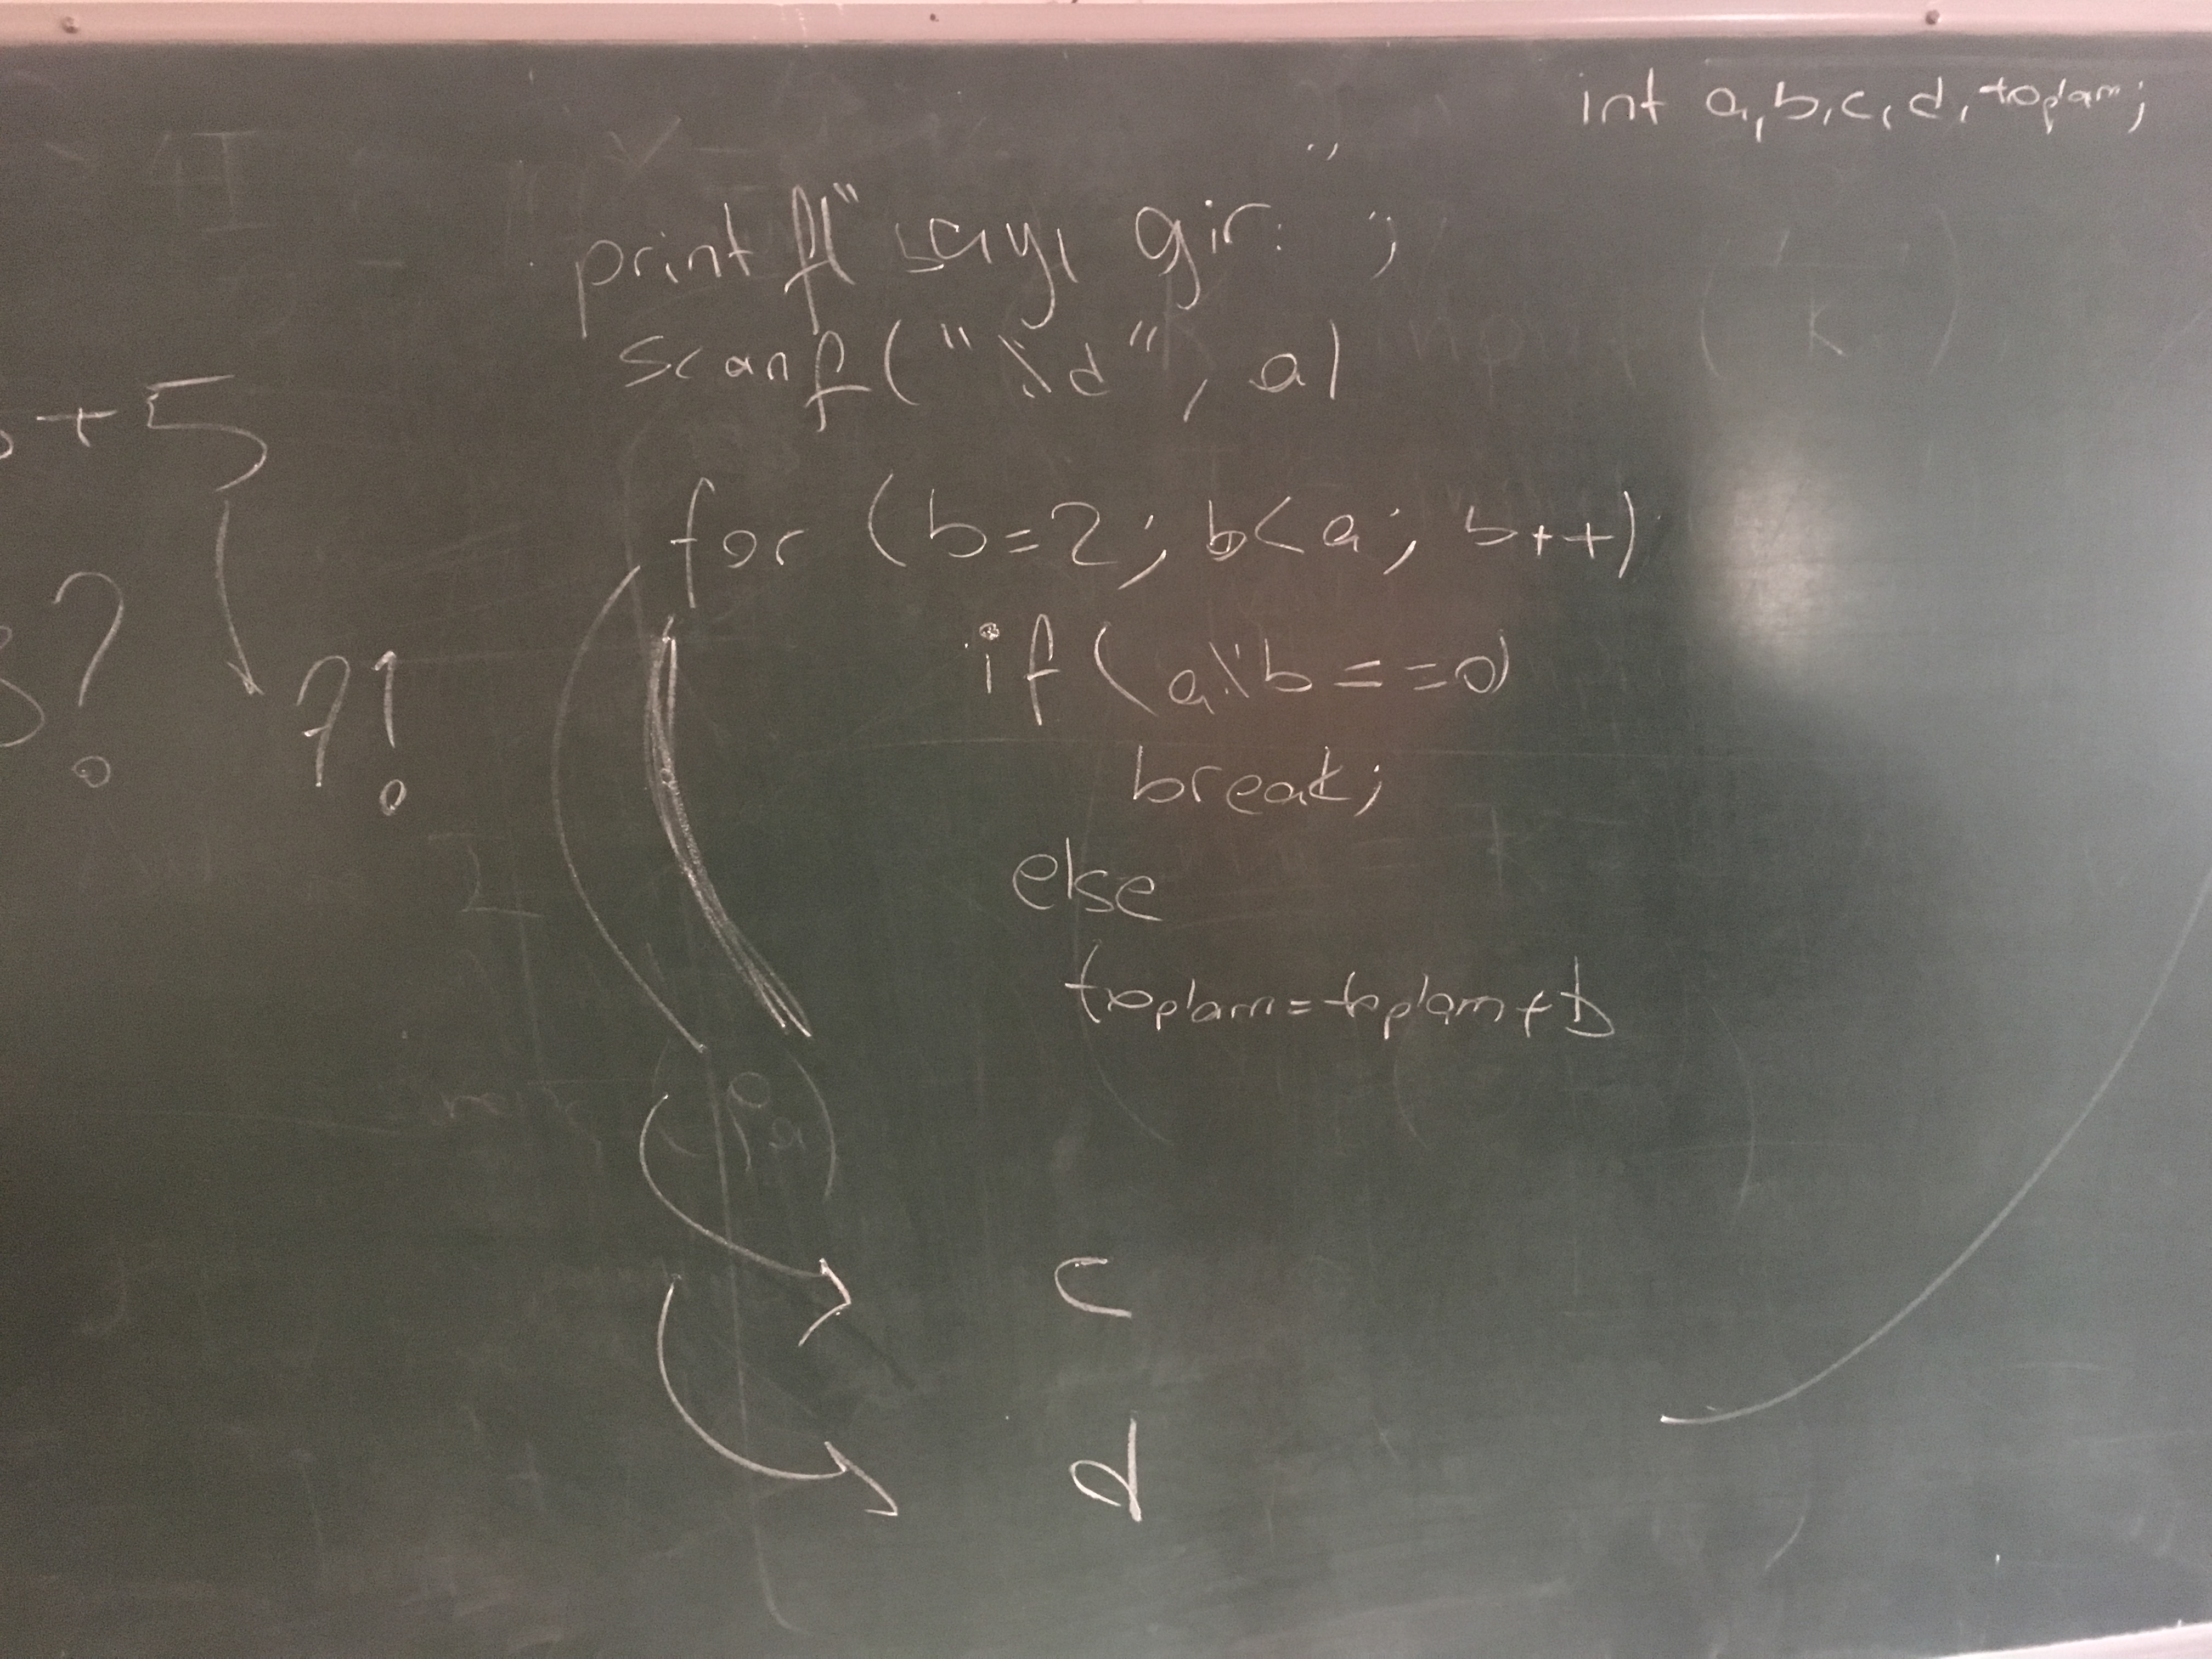 int a, b, c, d, toplam;
printf("sayı gir: ";
scanf("%d", a)
+5
for (b=2; b<a; b++)
?
?!
if (a%b==0)
break;
else
toplam=toplam+b
c
d